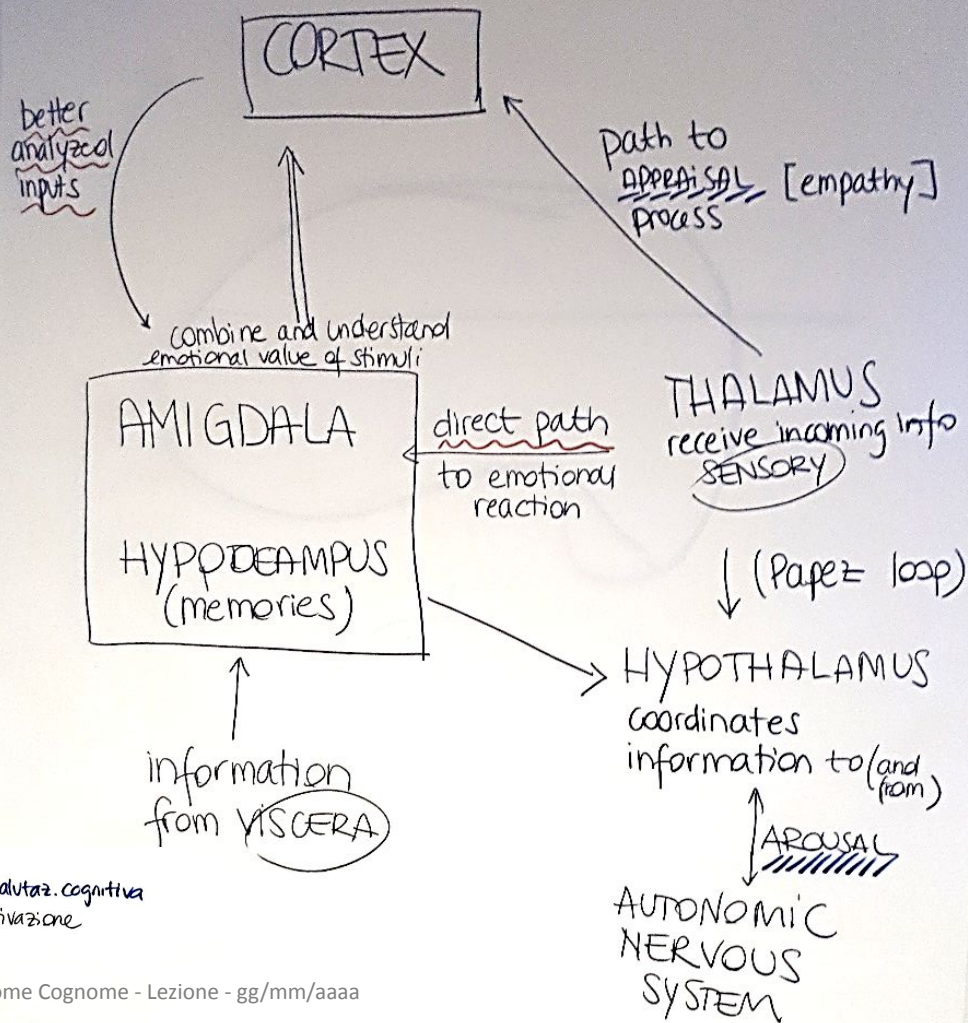 CORTEX
better
analyzed
inputs
path to
APPRAISAL [empathy]
process
combine and understand
emotional value of stimuli
AMIGDALA
HYPPOCAMPUS
(memories)
direct path
to emotional
reaction
THALAMUS
receive incoming info
SENSORY
(Papez loop)
HYPOTHALAMUS
coordinates
information to (and
from)
information
from VISCERA
AROUSAL
AUTONOMIC
NERVOUS
SYSTEM
alutaz. cognitiva
ivazione
ome Cognome - Lezione - gg/mm/aaaa